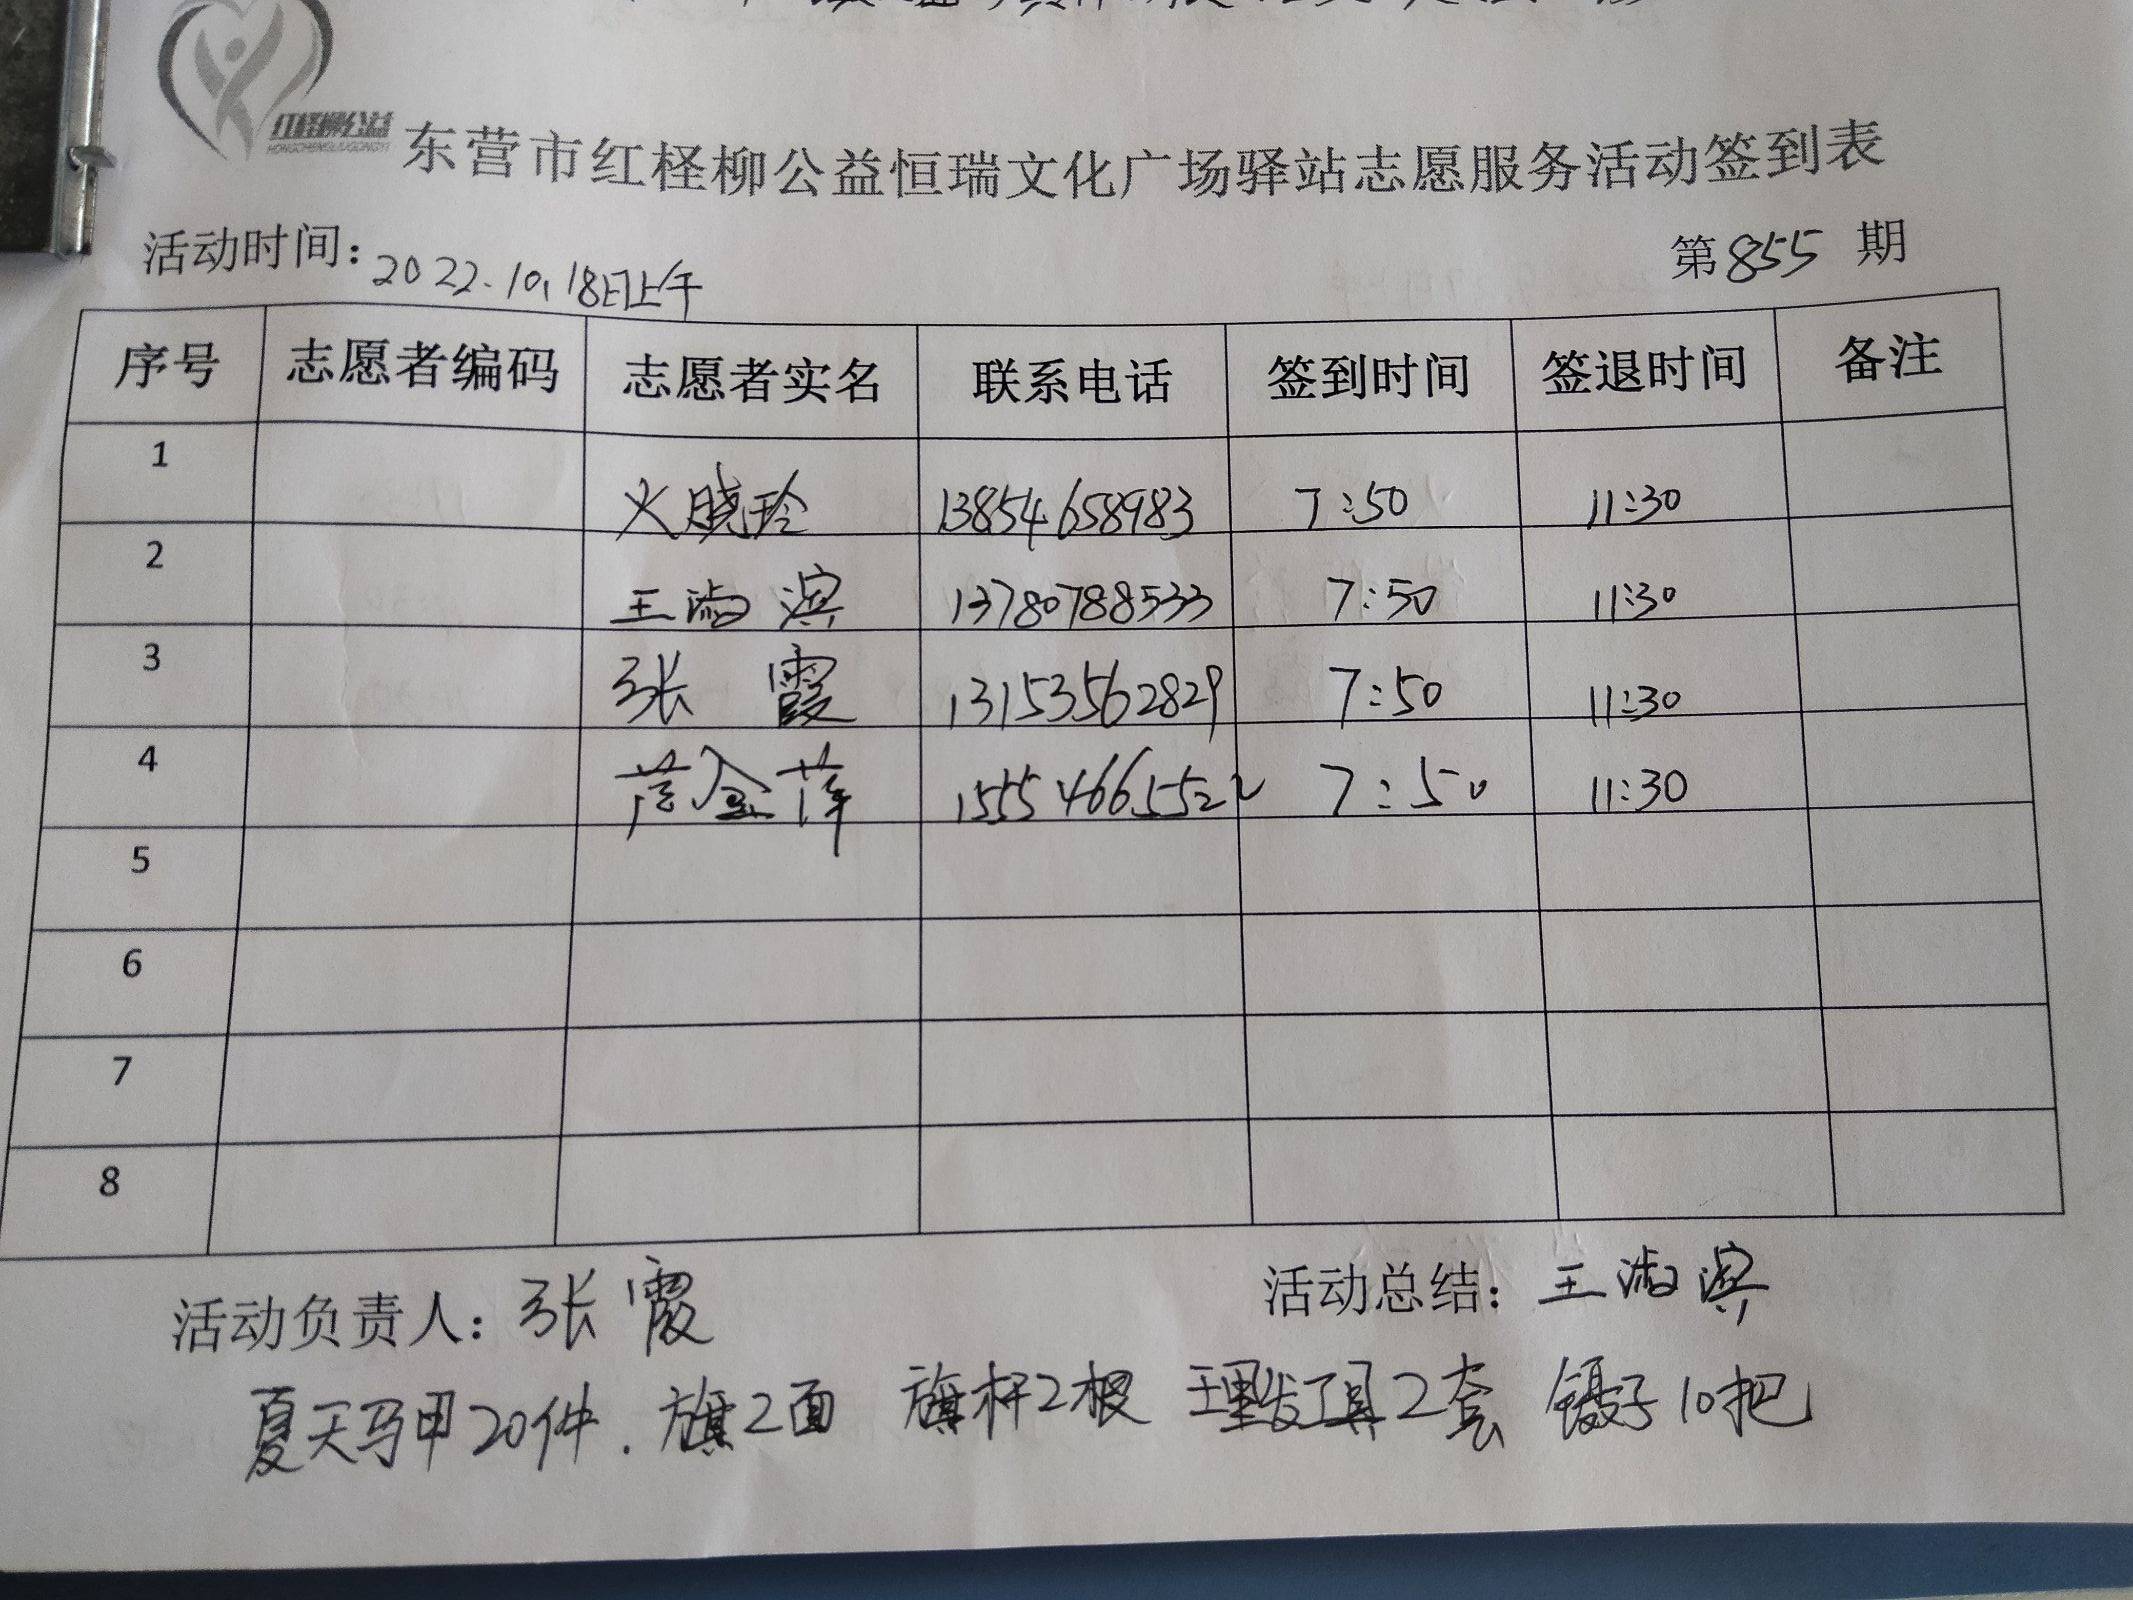 红柽柳公益
HONGCHENGLIUGONGYI
东营市红柽柳公益恒瑞文化广场驿站志愿服务活动签到表
活动时间：2022.10.18日上午 第855期
序号 志愿者编码 志愿者实名 联系电话 签到时间 签退时间 备注
1 火晓玲 13854658983 7:50 11:30
2 王淑滨 13780788533 7:50 11:30
3 张霞 13153562829 7:50 11:30
4 金萍 15554665522 7:50 11:30
5
6
7
8
活动负责人：张霞 活动总结：王淑滨
夏天马甲20件. 旗2面 旗杆2根 理发工具2套 镊子10把